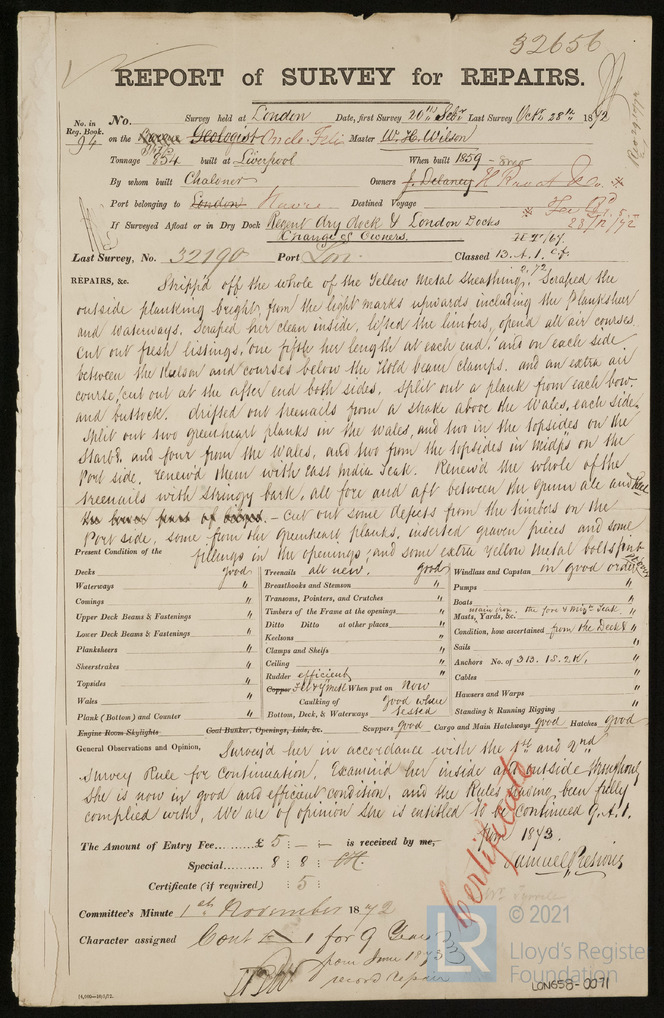 32656
REPORT of SURVEY for REPAIRS.
No. in Reg. Book. No. Survey held at London Date, first Survey 20th Sebr Last Survey Octr 28th 1872
94 on the Geologist Oncle Felix Master W. H. Wilson
Tonnage 854 built at Liverpool When built 1859
By whom built Chaloner Owners J. Delaney
Port belonging to London Havre Destined Voyage
28/12/72
If Surveyed Afloat or in Dry Dock Regent dry dock & London Docks
Change of Owners.
Last Survey, No. 32190 Port Lon. Classed 13. A. 1. c.f.
REPAIRS, &c. Stripp'd off the whole of the Yellow Metal Sheathing, Scraped the
outside planking bright, from the light marks upwards including the Planksheer
and waterways, Scraped her clean inside, lifted the limbers, open'd all air courses.
Cut out fresh listings, one fifth her length at each end, and on each side
between the Keelson and courses below the Hold beam clamps. and an extra air
course, cut out at the after end both sides. Split out a plank from each bow.
and buttock. drifted out treenails from a strake above the Wales, each side.
Split out two greenheart planks in the Wales, and two in the topsides on the
Starbd. and four from the Wales, and two from the topsides in Midps on the
Port side, renew'd them with East India Teak. Renew'd the whole of the
treenails with Stringy bark, all fore and aft between the Gunn'ale and Keel
the lower part of bilges. - Cut out some defects from the timbers on the
Port side, some from the Greenheart planks, inserted graven pieces and some
fillings in the openings, and some extra Yellow Metal bolts
Present Condition of the
Decks good
Waterways "
Comings "
Upper Deck Beams & Fastenings "
Lower Deck Beams & Fastenings "
Planksheers "
Sheerstrakes "
Topsides "
Wales "
Plank (Bottom) and Counter "
Engine Room Skylights
Treenails all new. good
Breasthooks and Stemson "
Transoms, Pointers, and Crutches "
Timbers of the Frame at the openings "
Ditto Ditto at other places "
Keelsons "
Clamps and Shelfs "
Ceiling "
Rudder efficient
Copper When put on Now
Caulking of Bottom, Deck, & Waterways good where tested
Coal Bunker, Openings, Lids, &c. Scuppers good Cargo and Main Hatchways good Hatches good
Windlass and Capstan in good order
Pumps "
Boats "
Masts, Yards, &c. "
Condition, how ascertained from the Deck "
Sails "
Anchors No. of 3B. 1S. 2K. "
Cables "
Hausers and Warps "
Standing & Running Rigging "
General Observations and Opinion, Survey'd her in accordance with the 1st and 2nd
Survey Rule for continuation, Examin'd her inside and outside throughout,
She is now in good and efficient condition, and the Rules having been fully
complied with, We are of opinion She is entitled to be Continued 9. A. 1.
from 1873.
Samuel Pretious
Certificate
The Amount of Entry Fee £ 5 : - : - is received by me,
Special 8 : 8 :
Certificate (if required) : 5 :
Committee's Minute 1st November 1872
Character assigned Cont A 1 for 9 Years
from June 1873
record repair
LR © 2021
Lloyd's Register
Foundation
LON658-0071